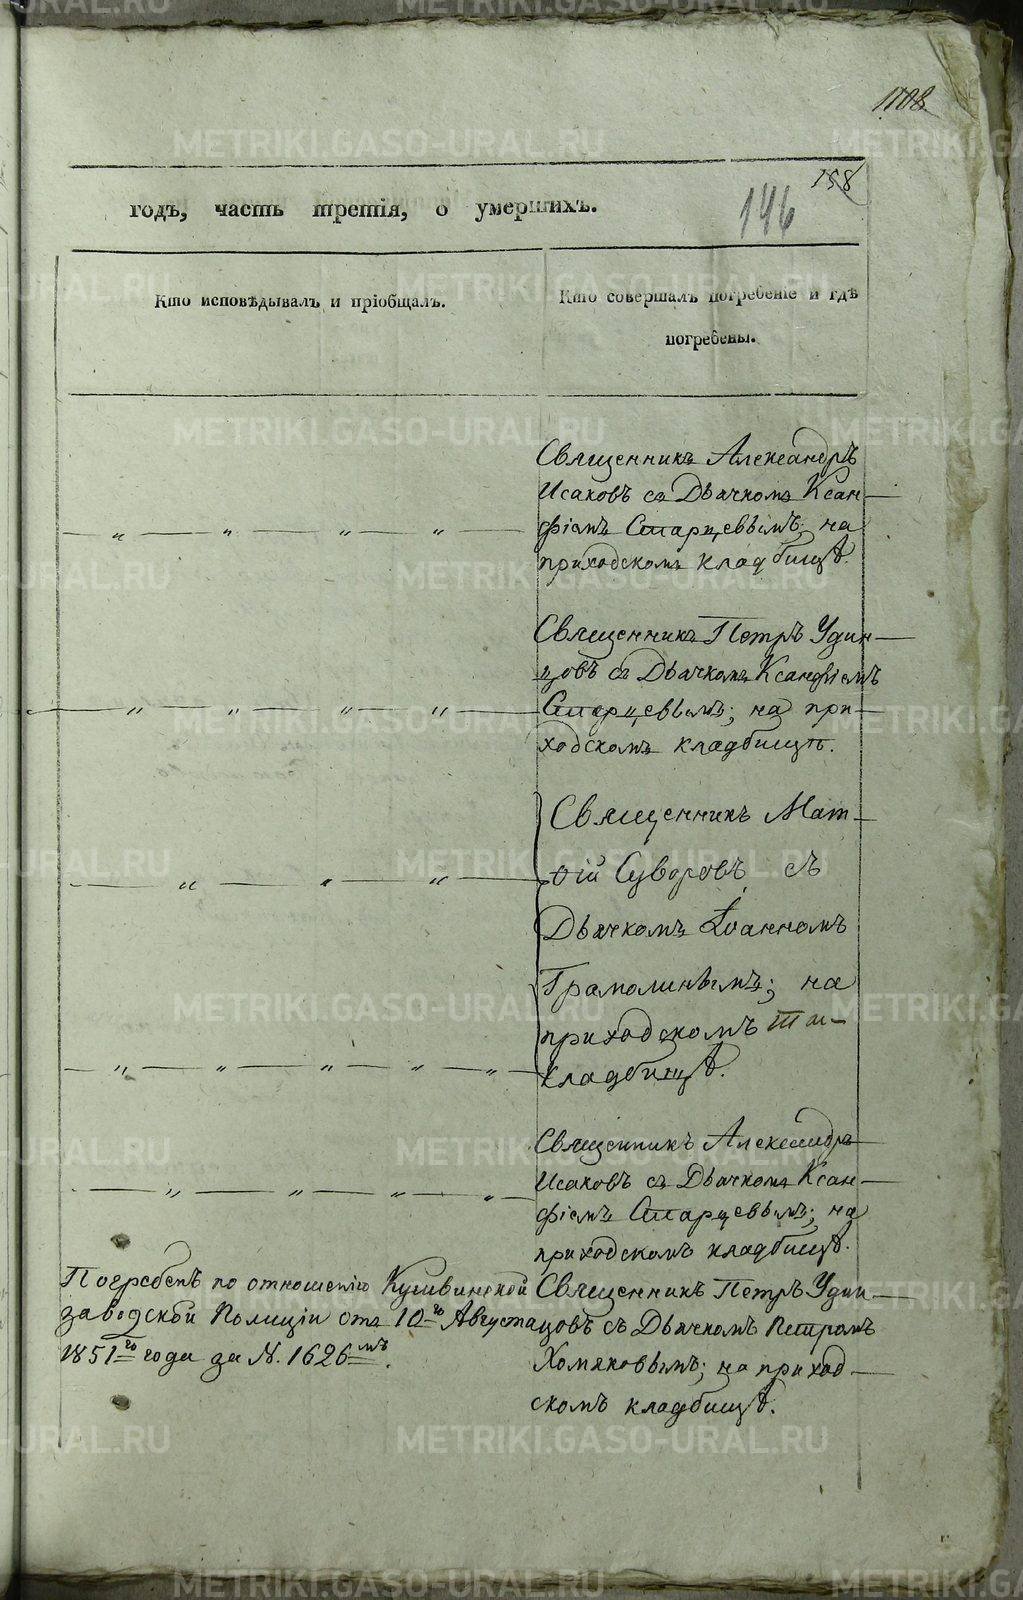 1108.
158
146
годъ, часть третія, о умершихъ.
Кто исповѣдывалъ и пріобщалъ.
Кто совершалъ погребеніе и гдѣ
погребены.
Священникъ Александръ
Исаковъ съ Дьячкомъ Ксан-
фіемъ Старцевымъ; на
приходскомъ кладбищѣ.
Священникъ Петръ Удин-
цовъ съ Дьячкомъ Ксанфіемъ
Старцевымъ; на при-
ходскомъ кладбищѣ.
Священникъ Мат-
ѳій Суворовъ съ
Дьячкомъ Іоанномъ
Грамолинымъ; на
приходскомъ
кладбищѣ.
Священникъ Александръ
Исаковъ съ Дьячкомъ Ксан-
фіемъ Старцевымъ; на
приходскомъ кладбищѣ.
Погребенъ по отношенію Кушвинской
заводской Полиціи отъ 10го Августа
1851го года за №. 1626мъ.
Священникъ Петръ Удин-
цовъ съ Дьячкомъ Петромъ
Хомяковымъ; на приход-
скомъ кладбищѣ.
METRIKI.GASO-URAL.RU